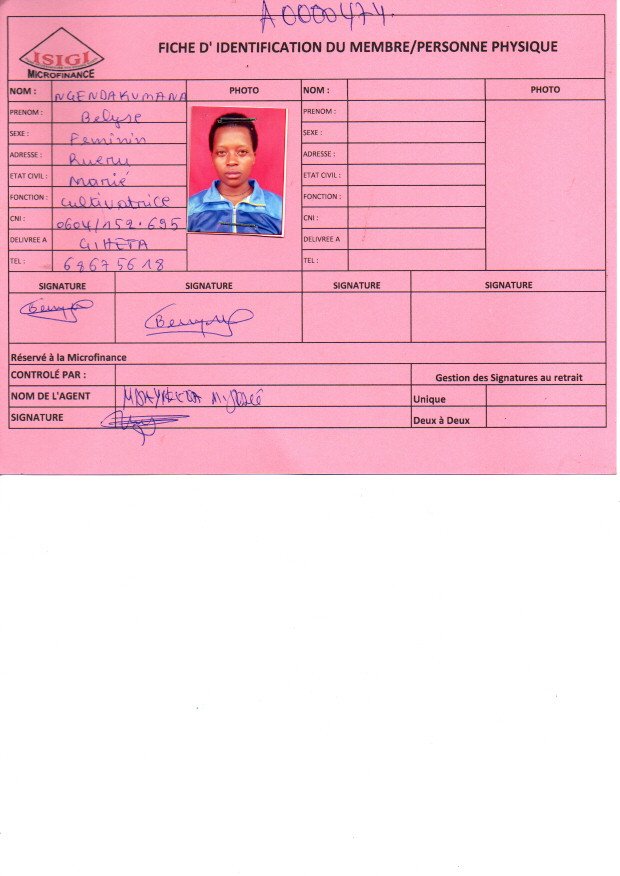 A0000474.
ISIGI
MICROFINANCE
FICHE D' IDENTIFICATION DU MEMBRE/PERSONNE PHYSIQUE
NOM : NGENDAKUMANA PHOTO NOM : PHOTO
PRENOM : Belyse PRENOM :
SEXE : Feminin SEXE :
ADRESSE : ADRESSE :
ETAT CIVIL : Marié ETAT CIVIL :
FONCTION : Cultivatrice FONCTION :
CNI : 0604/152.695 CNI :
DELIVREE A GIHETA DELIVREE A
TEL : 68675618 TEL :
SIGNATURE SIGNATURE SIGNATURE SIGNATURE
Réservé à la Microfinance
CONTROLÉ PAR : Gestion des Signatures au retrait
NOM DE L'AGENT Unique
SIGNATURE Deux à Deux